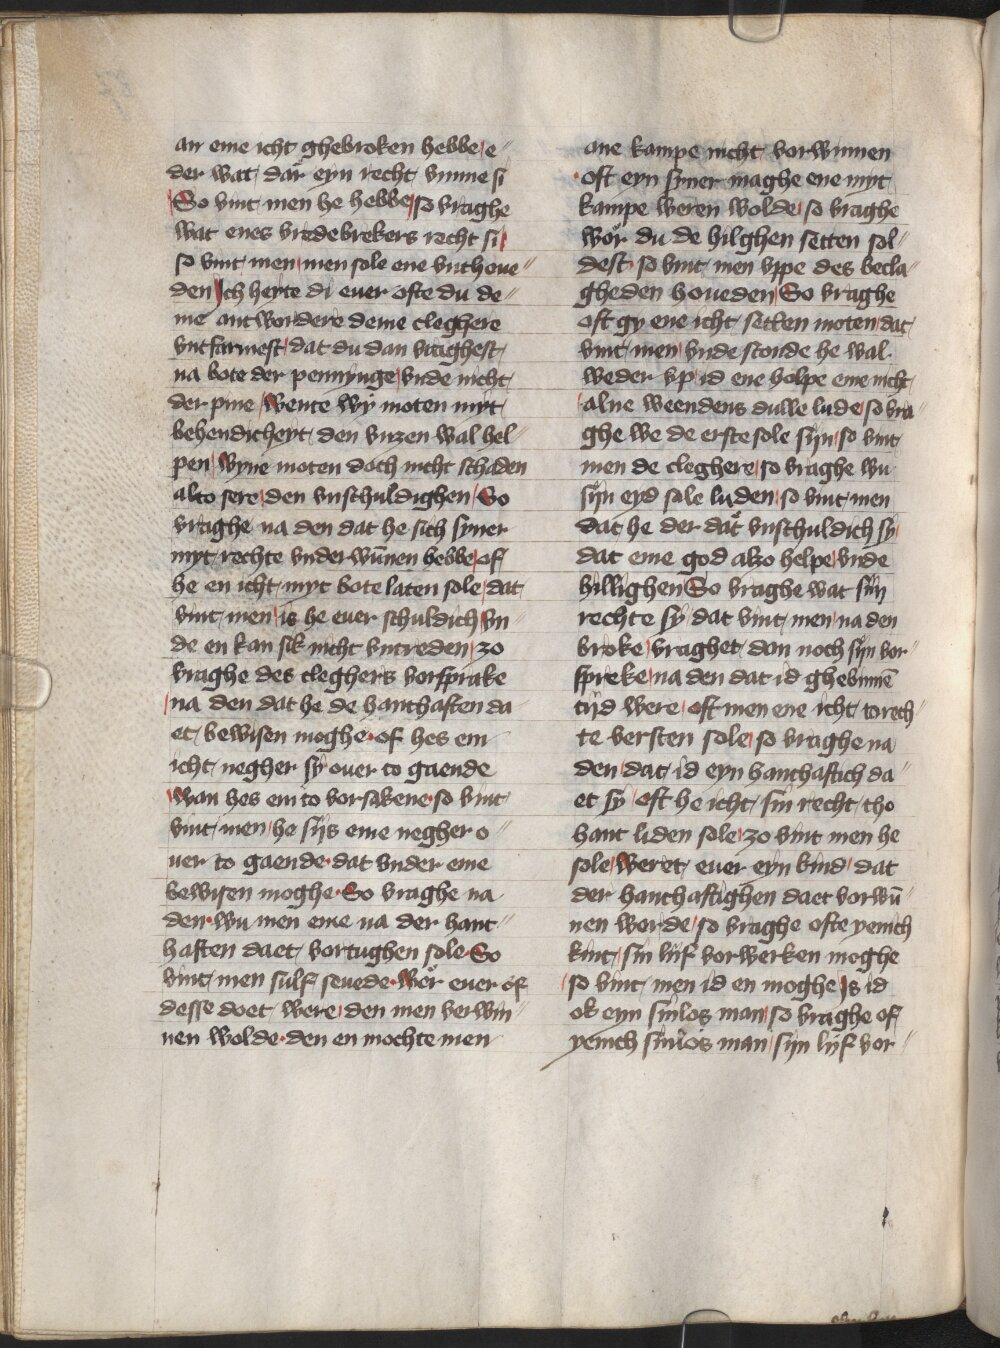 an eme icht ghebroken hebbe / e〃
der wat dar eyn recht vmme si
So vint men he hebbe / so vraghe
wat enes vredebrekers recht si /
so vint men / men sole ene vnthoue〃
den Ich heyte di euer ofte du de〃
me antwordere deme cleghere
vntfarmest / dat du dan vraghest
na bote der pennynge / vnde nicht
der pine / wente wÿ moten myt
behendicheyt den vnzen wal hel〃
pen / wyne moten doch nicht schaden
alto sere / den vnschuldighen / So
vraghe na den dat he sich syner
myt rechte vnderwūnen hebbe / of
he en icht myt bote laten sole / dat
vint men / is he euer schuldich / vn〃
de en kan sik nicht vntreden / zo
vraghe des cleghers vorsprake
/ na den dat he de hanthaften da
et bewisen moghe · of hes em
icht negher sÿ ouer to gaende
/ wan hes em to vorsakene · so vint
vint men / he sijs eme negher o〃
uer to gaende · dat vnder eme
bewisen moghe · So vraghe na
den · wu men eme na der hant〃
haften daet vortughen sole · So
vint men sulf seuede · wer euer of
desse doet were / den men verwin〃
nen wolde · den en mochte men
ane kampe nicht vorwinnen
· oft eyn syner maghe ene myt
kampe weren wolde / so vraghe
wor du de hilghen setten sol〃
dest · so vint men vppe des becla〃
gheden houeden / So vraghe
oft gy ene icht setten moten / dat
vint men / vnde stonde he wal
weder vp / id ene holpe eme nicht
/ alne weendens dulle lude / so vra〃
ghe we de erste sole sijn / so vint
men de cleghere / so vraghe wu
sijn eyd sole luden / so vint men
dat he der dat vnschuldich sÿ /
dat eme god alzo helpe / vnde
hilwighen So vraghe wat sijn
rechte sÿ / dat vint men / na den
broke / vraghet dan noch sijn vor〃
spreke / na den dat id ghebinnē
tijd were / oft men ene icht to rech〃
te versten sole / so vraghe na
den / dat id eyn hanthaftich da〃
et sÿ / oft he icht sin recht tho
hant liden sole / zo vint men he
sole / weret euer eyn kind / dat
der hanthaftighen daet vorwū〃
nen worde / so vraghe ofte yenich
kint / sin lijf vorwerken moghe
/ so vint men id en moghe / Is id
ok eyn sinlos man / so vraghe of
yenich sinlos man / sijn lijf vor〃